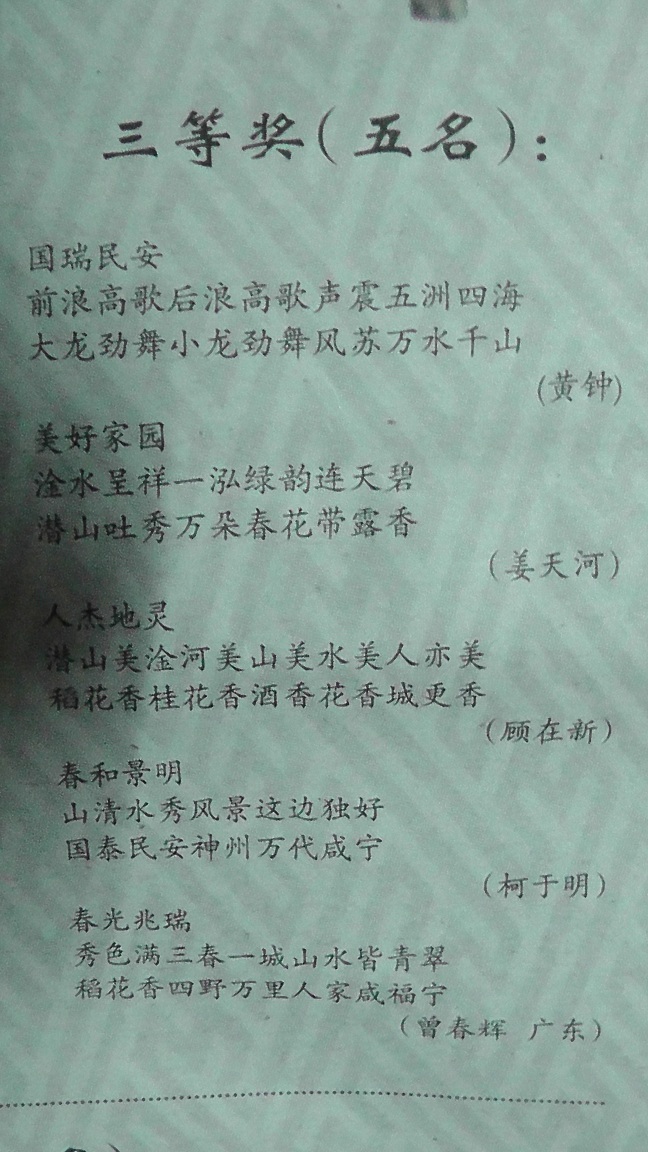 三等奖(五名):
国瑞民安
前浪高歌后浪高歌声震五洲四海
大龙劲舞小龙劲舞风苏万水千山
(黄钟)
美好家园
淦水呈祥一泓绿韵连天碧
潜山吐秀万朵春花带露香
(姜天河)
人杰地灵
潜山美淦河美山美水美人亦美
稻花香桂花香酒香花香城更香
(顾在新)
春和景明
山清水秀风景这边独好
国泰民安神州万代咸宁
(柯于明)
春光兆瑞
秀色满三春一城山水皆青翠
稻花香四野万里人家咸福宁
(曾春辉 广东)